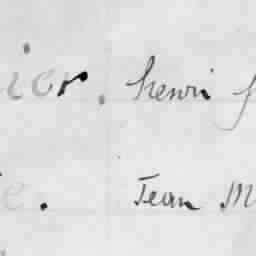 ier. henri f
e. Jean M